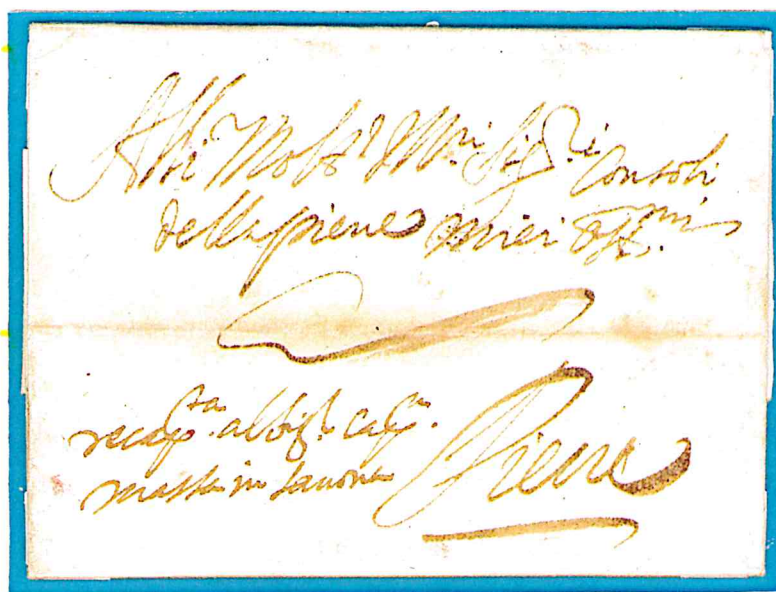 Alli Molt. Mri. Sig.ri Consoli
della pieve miei oss.mi
recap.ta al Sig.r Cap.n
massa in Savona
Pieve